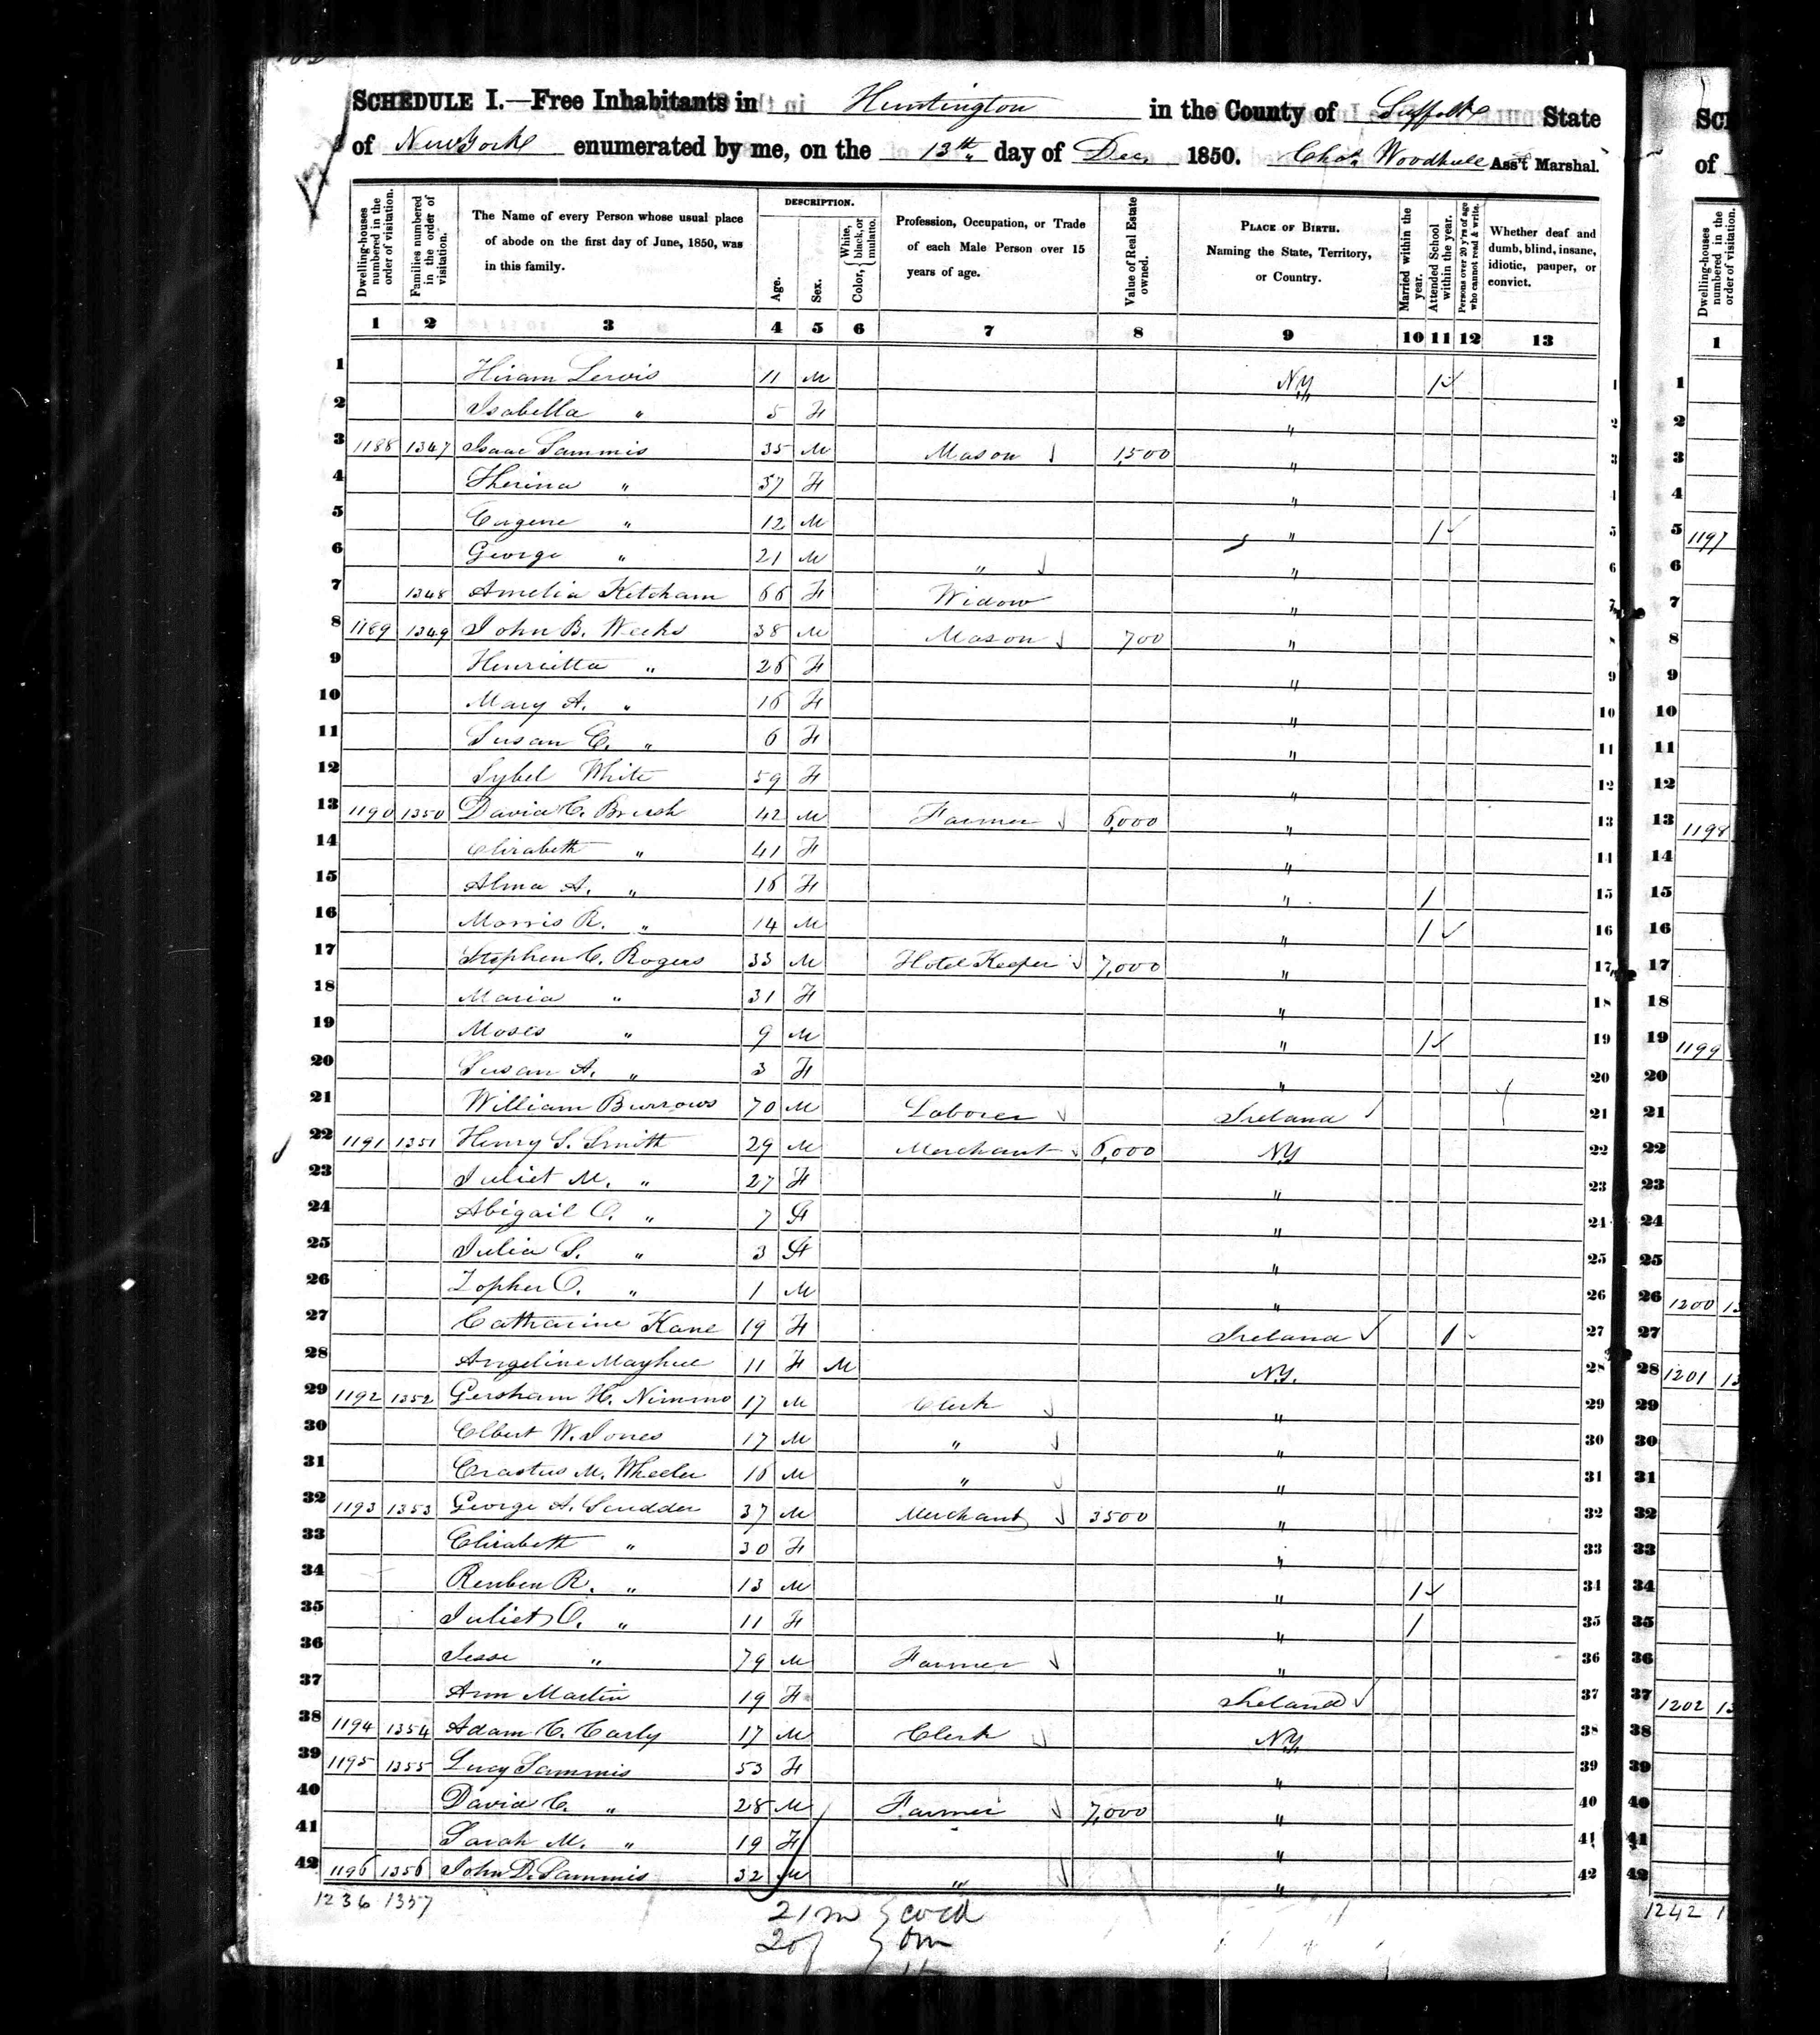 SCHEDULE I.—Free Inhabitants in Huntington in the County of Suffolk State
of New York enumerated by me, on the 13th day of Dec 1850. Chas. Woodhull Ass't Marshal.
Dwelling-houses numbered in the order of visitation.
Families numbered in the order of visitation.
The Name of every Person whose usual place of abode on the first day of June, 1850, was in this family.
DESCRIPTION.
Age.
Sex.
Color, { White, black, or mulatto.
Profession, Occupation, or Trade of each Male Person over 15 years of age.
Value of Real Estate owned.
PLACE OF BIRTH. Naming the State, Territory, or Country.
Married within the year.
Attended School within the year.
Persons over 20 y'rs of age who cannot read & write.
Whether deaf and dumb, blind, insane, idiotic, pauper, or convict.
1 2 3 4 5 6 7 8 9 10 11 12 13
1 Hiram Lewis 11 M N.Y 1 ✓ 1
2 Isabella " 5 F " 2
3 1188 1347 Isaac Sammis 35 M Mason 1,500 " 3
4 " 37 F " 4
5 Eugene " 12 M " 1 ✓ 5
6 George " 21 M " " 6
7 1348 Amelia Ketcham 66 F Widow " 7
8 1189 1349 John B. Weeks 38 M Mason 700 " 8
9 Henrietta " 26 F " 9
10 Mary A. " 16 F " 10
11 Susan C. " 6 F " 11
12 Sybel White 59 F " 12
13 1190 1350 David C. Brush 42 M Farmer 6,000 " 13
14 Elizabeth " 41 F " 14
15 Alma A. " 16 F " 1 15
16 Morris R. " 14 M " 1 ✓ 16
17 Stephen C. Rogers 33 M Hotel Keeper 7,000 " 17
18 Maria " 31 F " 18
19 Moses " 9 M " 1 ✓ 19
20 Susan A. " 3 F " 20
21 William Burrows 70 M Laborer Ireland 21
22 1191 1351 Henry S. Smith 29 M Merchant 6,000 N.Y 22
23 Juliet M. " 27 F " 23
24 Abigail O. " 7 F " 24
25 Julia S. " 3 F " 25
26 Zopher O. " 1 M " 26
27 Catharine Kane 19 F Ireland ✓ 1 27
28 Angeline Mayhue 11 F M N.Y. 28
29 1192 1352 Gersham H. Nimmo 17 M Clerk " 29
30 Elbert W. Jones 17 M " " 30
31 Erastus M. Wheeler 16 M " " 31
32 1193 1353 George A. Scudder 37 M Merchant 3500 " 32
33 Elizabeth " 30 F " 33
34 Reuben R. " 13 M " 1 ✓ 34
35 Juliet O. " 11 F " 1 35
36 Jesse " 79 M Farmer " 36
37 Ann Martin 19 F Ireland ✓ 37
38 1194 1354 Adam C. Carly 17 M Clerk N.Y 38
39 1195 1355 Lucy Sammis 53 F " 39
40 David C. " 28 M Farmer 7,000 " 40
41 Sarah M. " 19 F " 41
42 1196 1356 John D. Sammis 32 M " " 42
1236 1357
21 m
20 f
SCH
of
Dwelling-houses numbered in the order of visitation.
1
1
2
3
4
5 1197
6
7
8
9
10
11
12
13 1198
14
15
16
17
18
19 1199
20
21
22
23
24
25
26 1200 13
27
28 1201 13
29
30
31
32
33
34
35
36
37 1202 13
38
39
40
41
42
1242 1